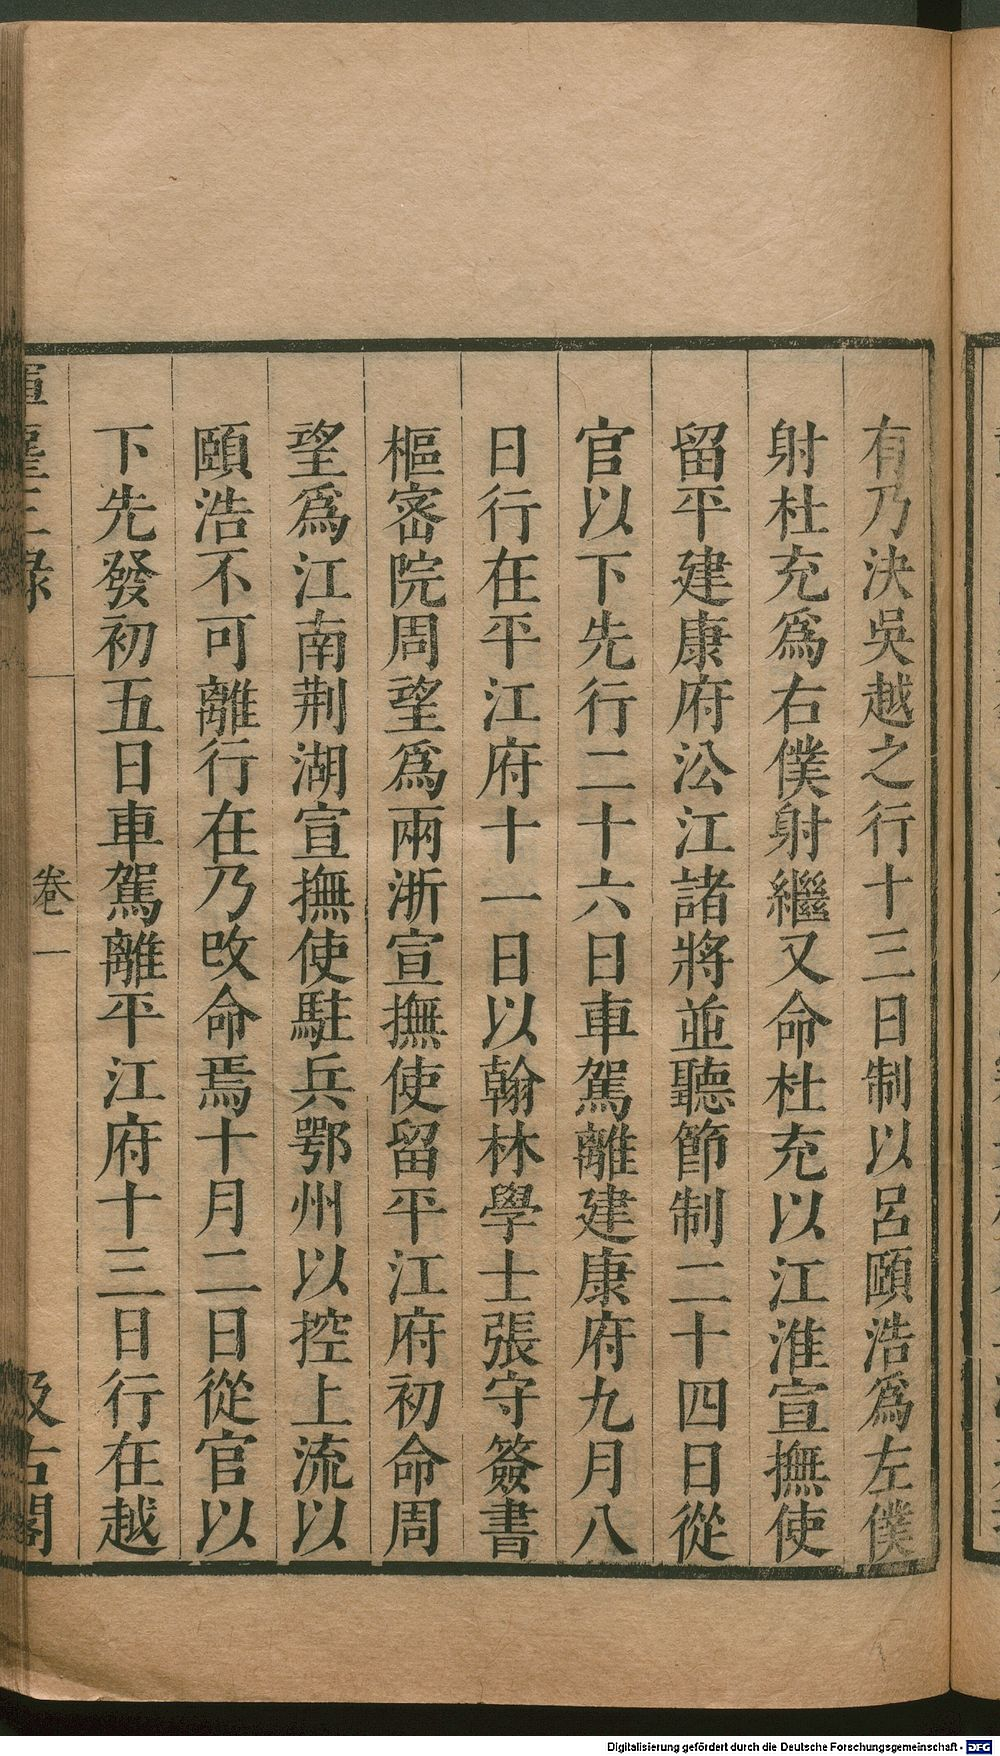 有乃決吳越之行十三日制以呂頤浩爲左僕
射杜充爲右僕射繼又命杜充以江淮宣撫使
留平建康府㳂江諸將並聽節制二十四日從
官以下先行二十六日車駕離建康府九月八
日行在平江府十一日以翰林學士張守簽書
樞密院周望爲兩浙宣撫使留平江府初命周
望爲江南荆湖宣撫使駐兵鄂州以控上流以
頤浩不可離行在乃改命焉十月二日從官以
下先發初五日車駕離平江府十三日行在越
三錄
卷一
汲古閣
Digitalisierung gefördert durch die Deutsche Forschungsgemeinschaft - DFG